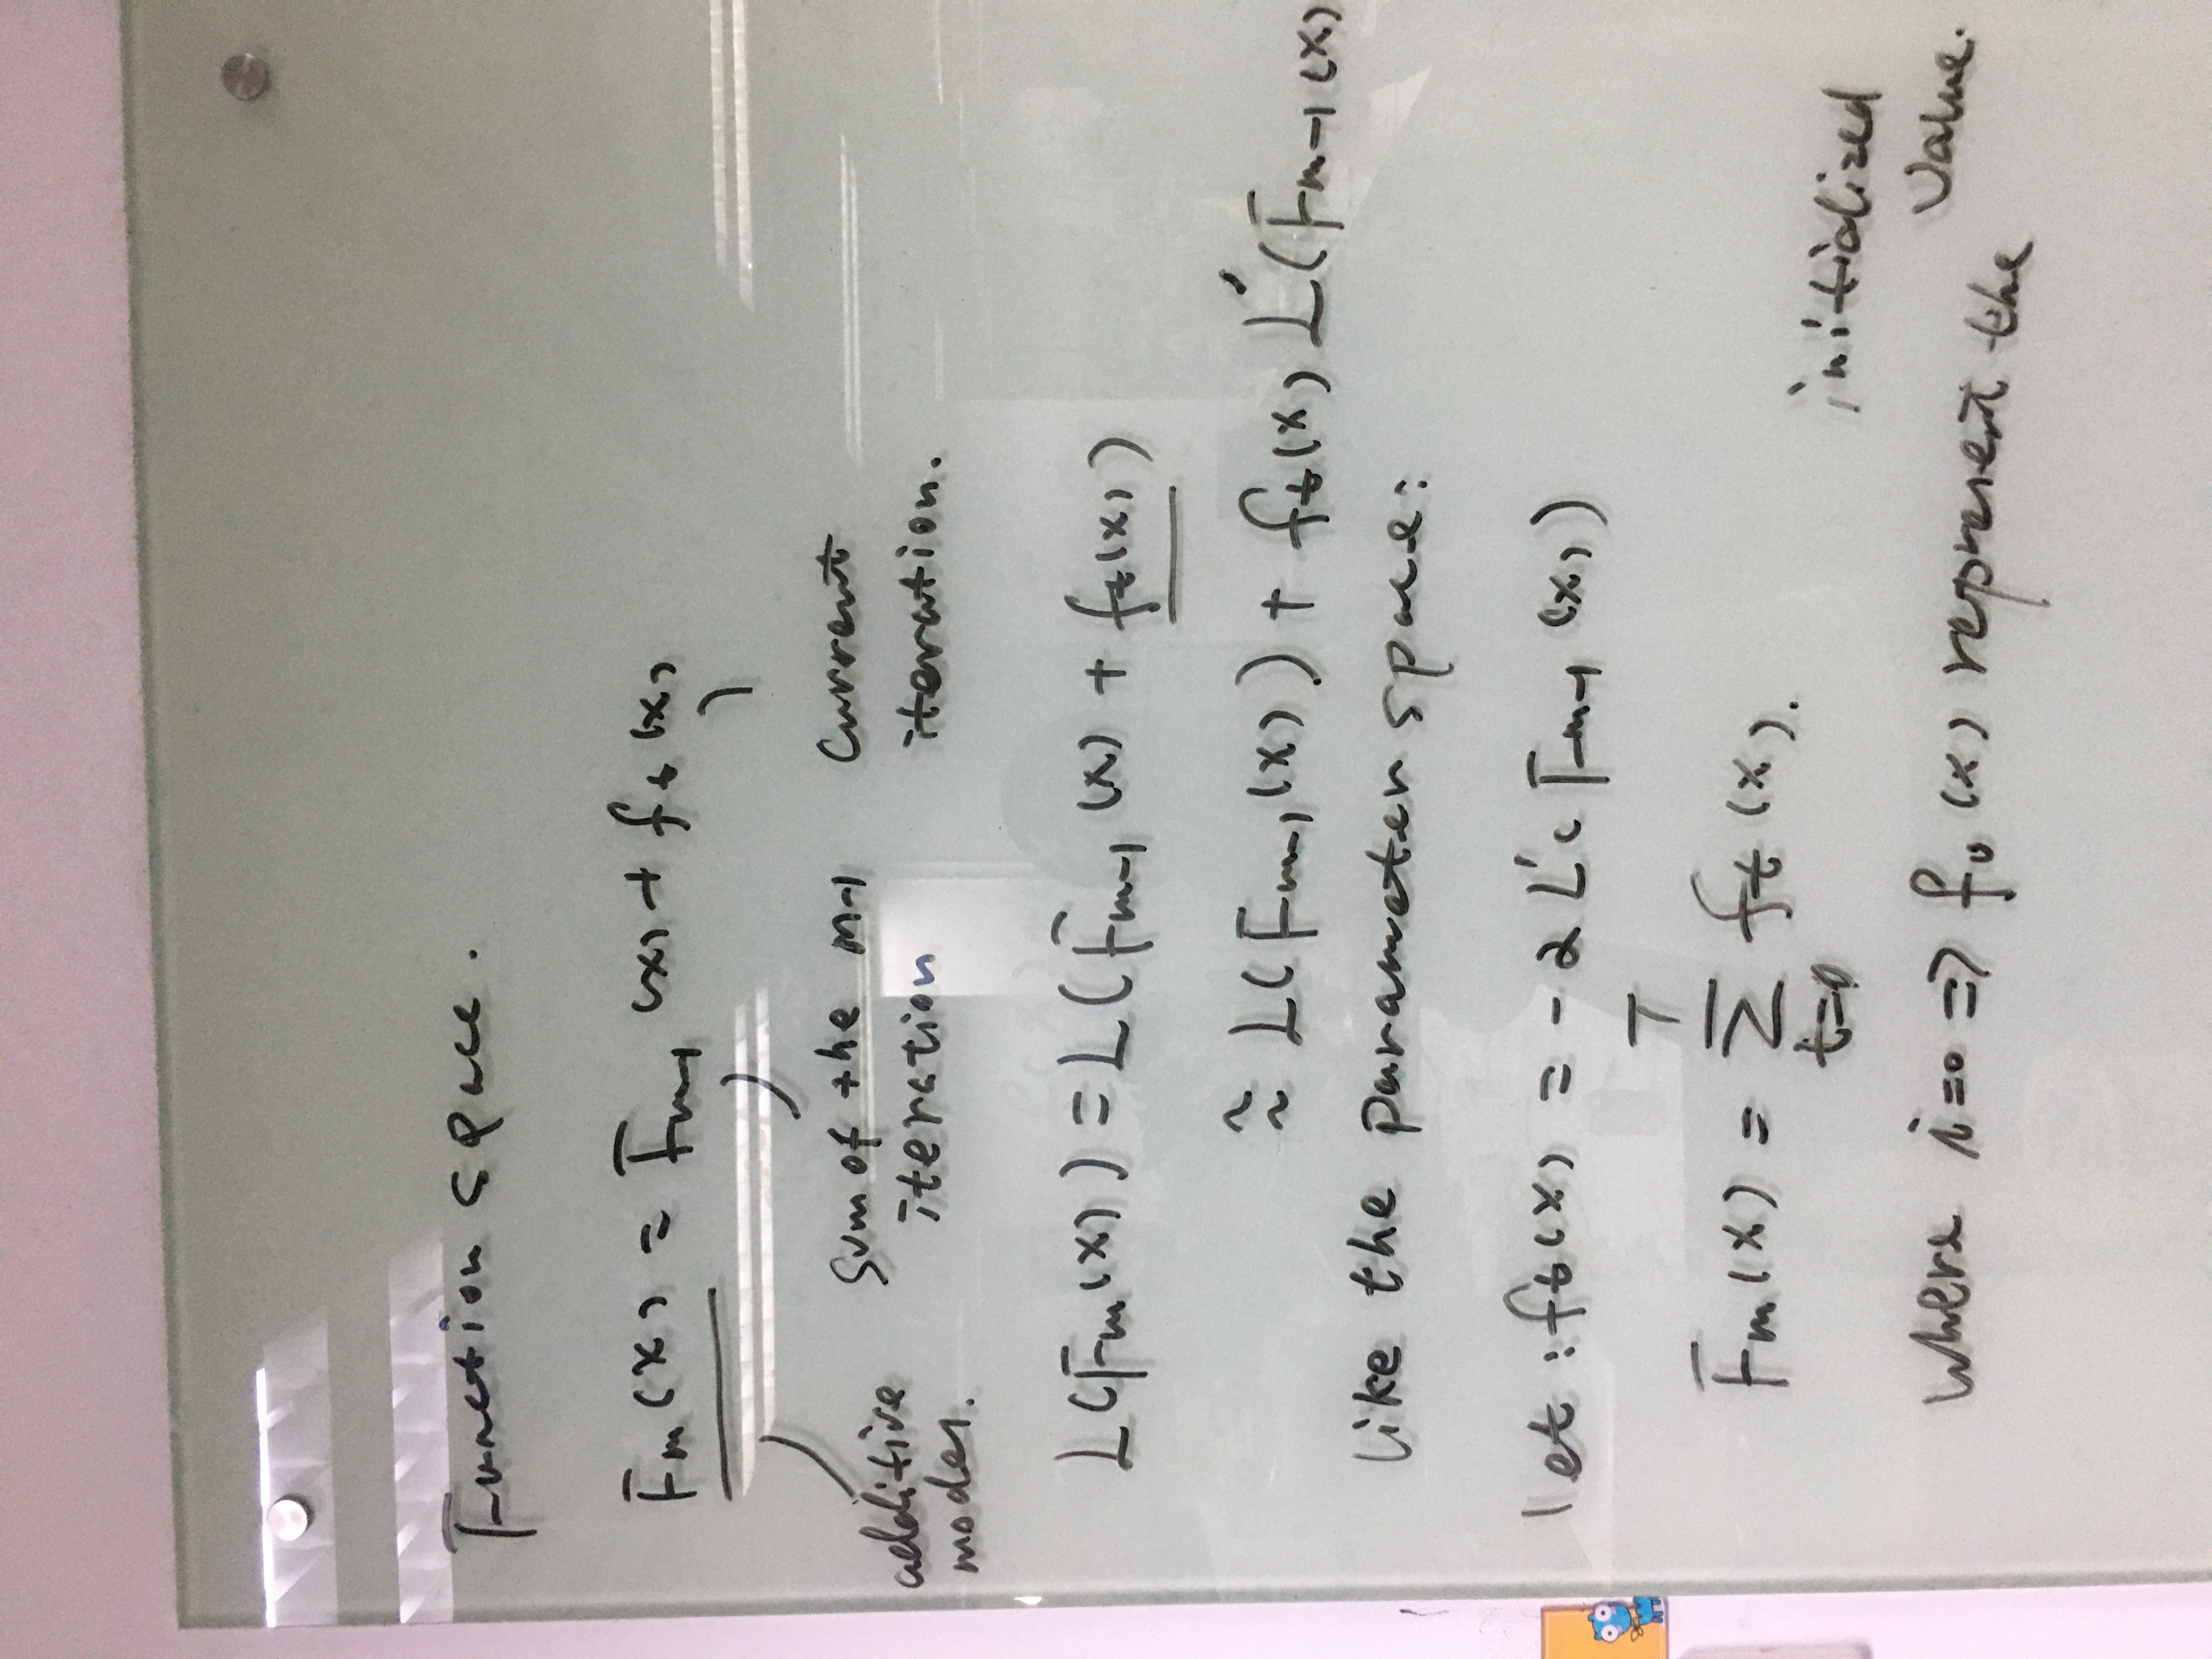 Function space.
Fm(x) = Fm-1(x) + ft(x)
additive model.
sum of the m-1 iteration
current iteration.
L(Fm(x)) = L(Fm-1(x) + ft(x))
≈ L(Fm-1(x)) + ft(x) L'(Fm-1(x)
like the parameter space:
let: ft(x) = -α L'(Fm-1(x))
Fm(x) = Σ_{t=0}^{T} ft(x).
where i=0 => f0(x) represent the initialized value.